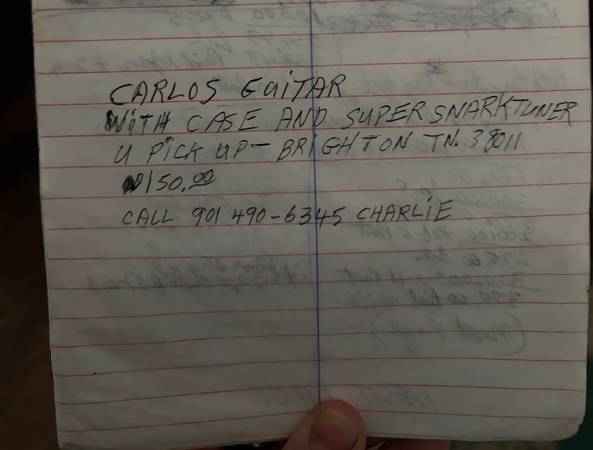 CARLOS GUITAR
WITH CASE AND SUPER SNARK TUNER
U PICK UP - BRIGHTON TN. 38011
150.00
CALL 901 490-6345 CHARLIE